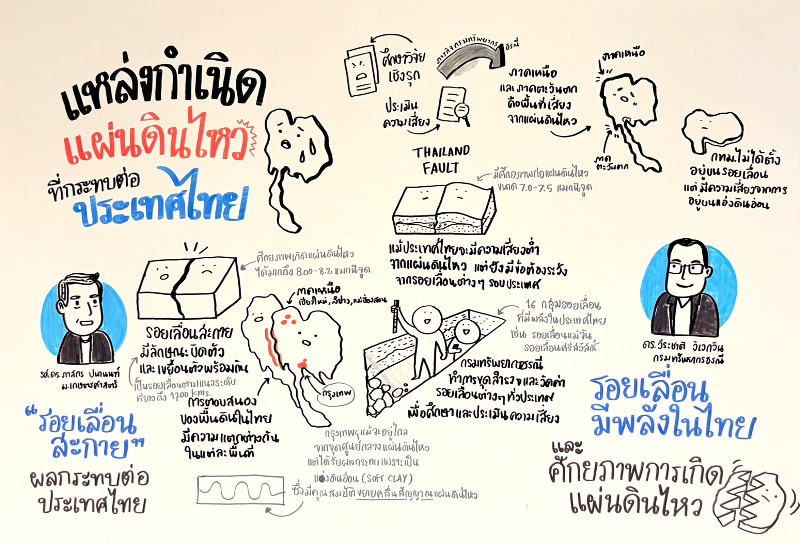 แหล่งกำเนิด
แผ่นดินไหว
ที่กระทบต่อ
ประเทศไทย
ศึกษาวิจัย
เชิงรุก
ประเมิน
ความเสี่ยง
ภาคเหนือ
และภาคตะวันตก
คือพื้นที่เสี่ยง
จากแผ่นดินไหว
ภาคเหนือ
ภาค
ตะวันตก
กทม.ไม่ได้ตั้ง
อยู่บนรอยเลื่อน
แต่มีความเสี่ยงจากการ
อยู่บนแอ่งดินอ่อน
THAILAND
FAULT
มีศักยภาพก่อแผ่นดินไหว
ขนาด 7.0-7.5 แมกนิจูด
แม้ประเทศไทยจะมีความเสี่ยงต่ำ
จากแผ่นดินไหว แต่ยังมีข้อต้องระวัง
จากรอยเลื่อนต่างๆ รอบประเทศ
ศักยภาพเกิดแผ่นดินไหว
ได้มากถึง 8.00-8.2 แมกนิจูด
รอยเลื่อนสะกาย
มีลักษณะบิดตัว
และเขยื้อนตัวพร้อมกัน
เป็นรอยเลื่อนตามแนวระดับ
1200 kms.
ภาคเหนือ
กรุงเทพ
การตอบสนอง
ของพื้นดินในไทย
มีความแตกต่างกัน
ในแต่ละพื้นที่
กรุงเทพฯ แม้จะอยู่ไกล
จากจุดศูนย์กลางแผ่นดินไหว
แต่ได้รับผลกระทบ เพราะเป็น
แอ่งดินอ่อน (SOFT CLAY)
ซึ่งมีคุณสมบัติขยายคลื่นสัญญาณแผ่นดินไหว
16 กลุ่มรอยเลื่อน
ที่มีพลังในประเทศไทย
เช่น รอยเลื่อนแม่จัน
รอยเลื่อนศรีสวัสดิ์
กรมทรัพยากรธรณี
ทำการขุดสำรวจและวัดค่า
รอยเลื่อนต่างๆ ทั่วประเทศ
เพื่อศึกษาและประเมินความเสี่ยง
รศ.ดร.ภาสกร ปนานนท์
ม.เกษตรศาสตร์
"รอยเลื่อน
สะกาย"
ผลกระทบต่อ
ประเทศไทย
ดร.วีระชาติ วิเวกวิน
กรมทรัพยากรธรณี
รอยเลื่อน
มีพลังในไทย
และ
ศักยภาพการเกิด
แผ่นดินไหว